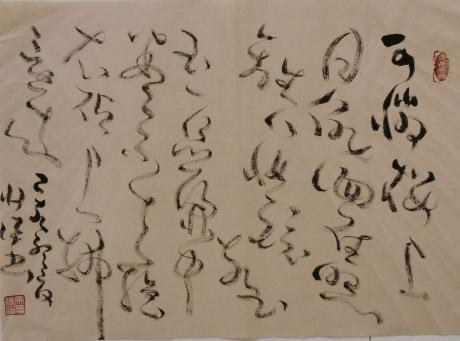 可憐樓上
月徘徊應照
離人妝鏡臺
玉户簾中
卷不去擣
衣砧上拂
還來